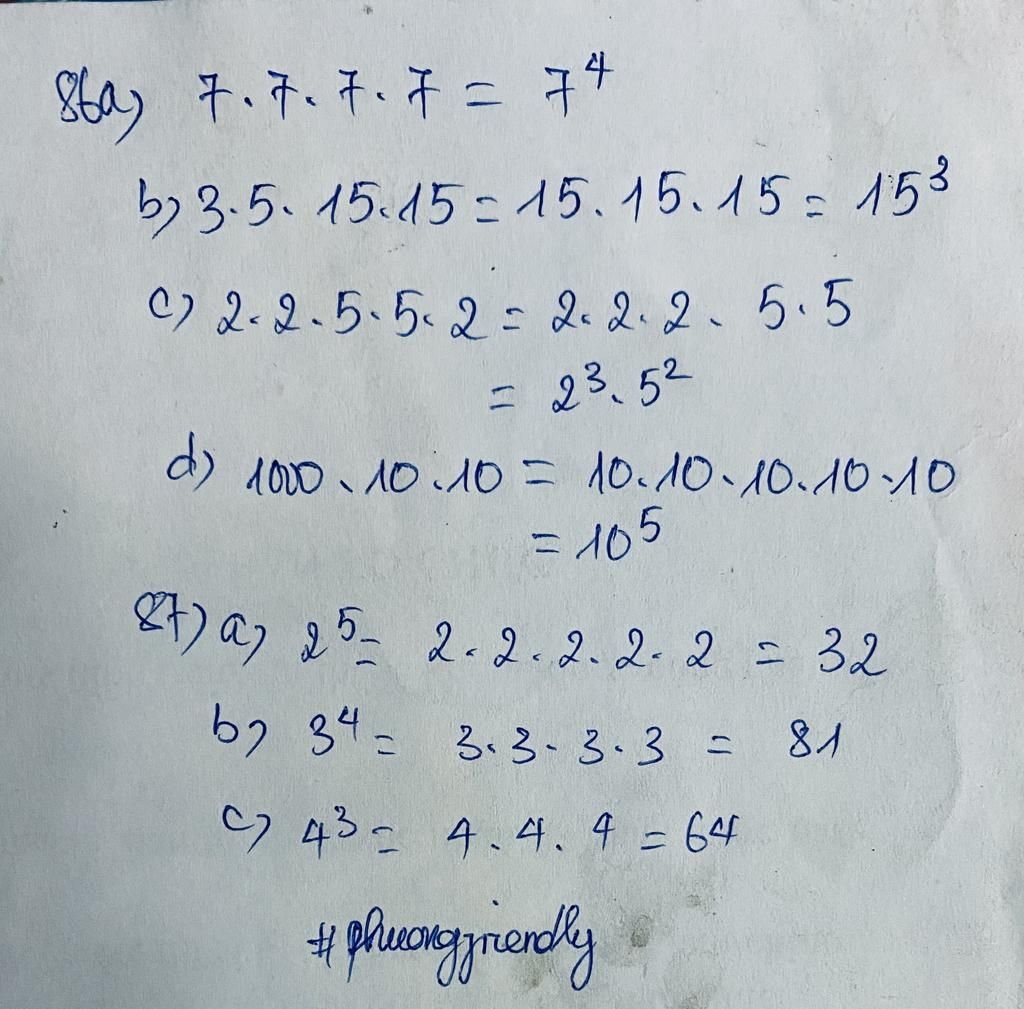 86a) 7 . 7 . 7 . 7 = 7⁴
b) 3 . 5 . 15 . 15 = 15 . 15 . 15 = 15³
c) 2 . 2 . 5 . 5 . 2 = 2 . 2 . 2 . 5 . 5
= 2³ . 5²
d) 1000 . 10 . 10 = 10 . 10 . 10 . 10 . 10
= 10⁵
87) a) 2⁵ = 2 . 2 . 2 . 2 . 2 = 32
b) 3⁴ = 3 . 3 . 3 . 3 = 81
c) 4³ = 4 . 4 . 4 = 64
# phuongfriendly